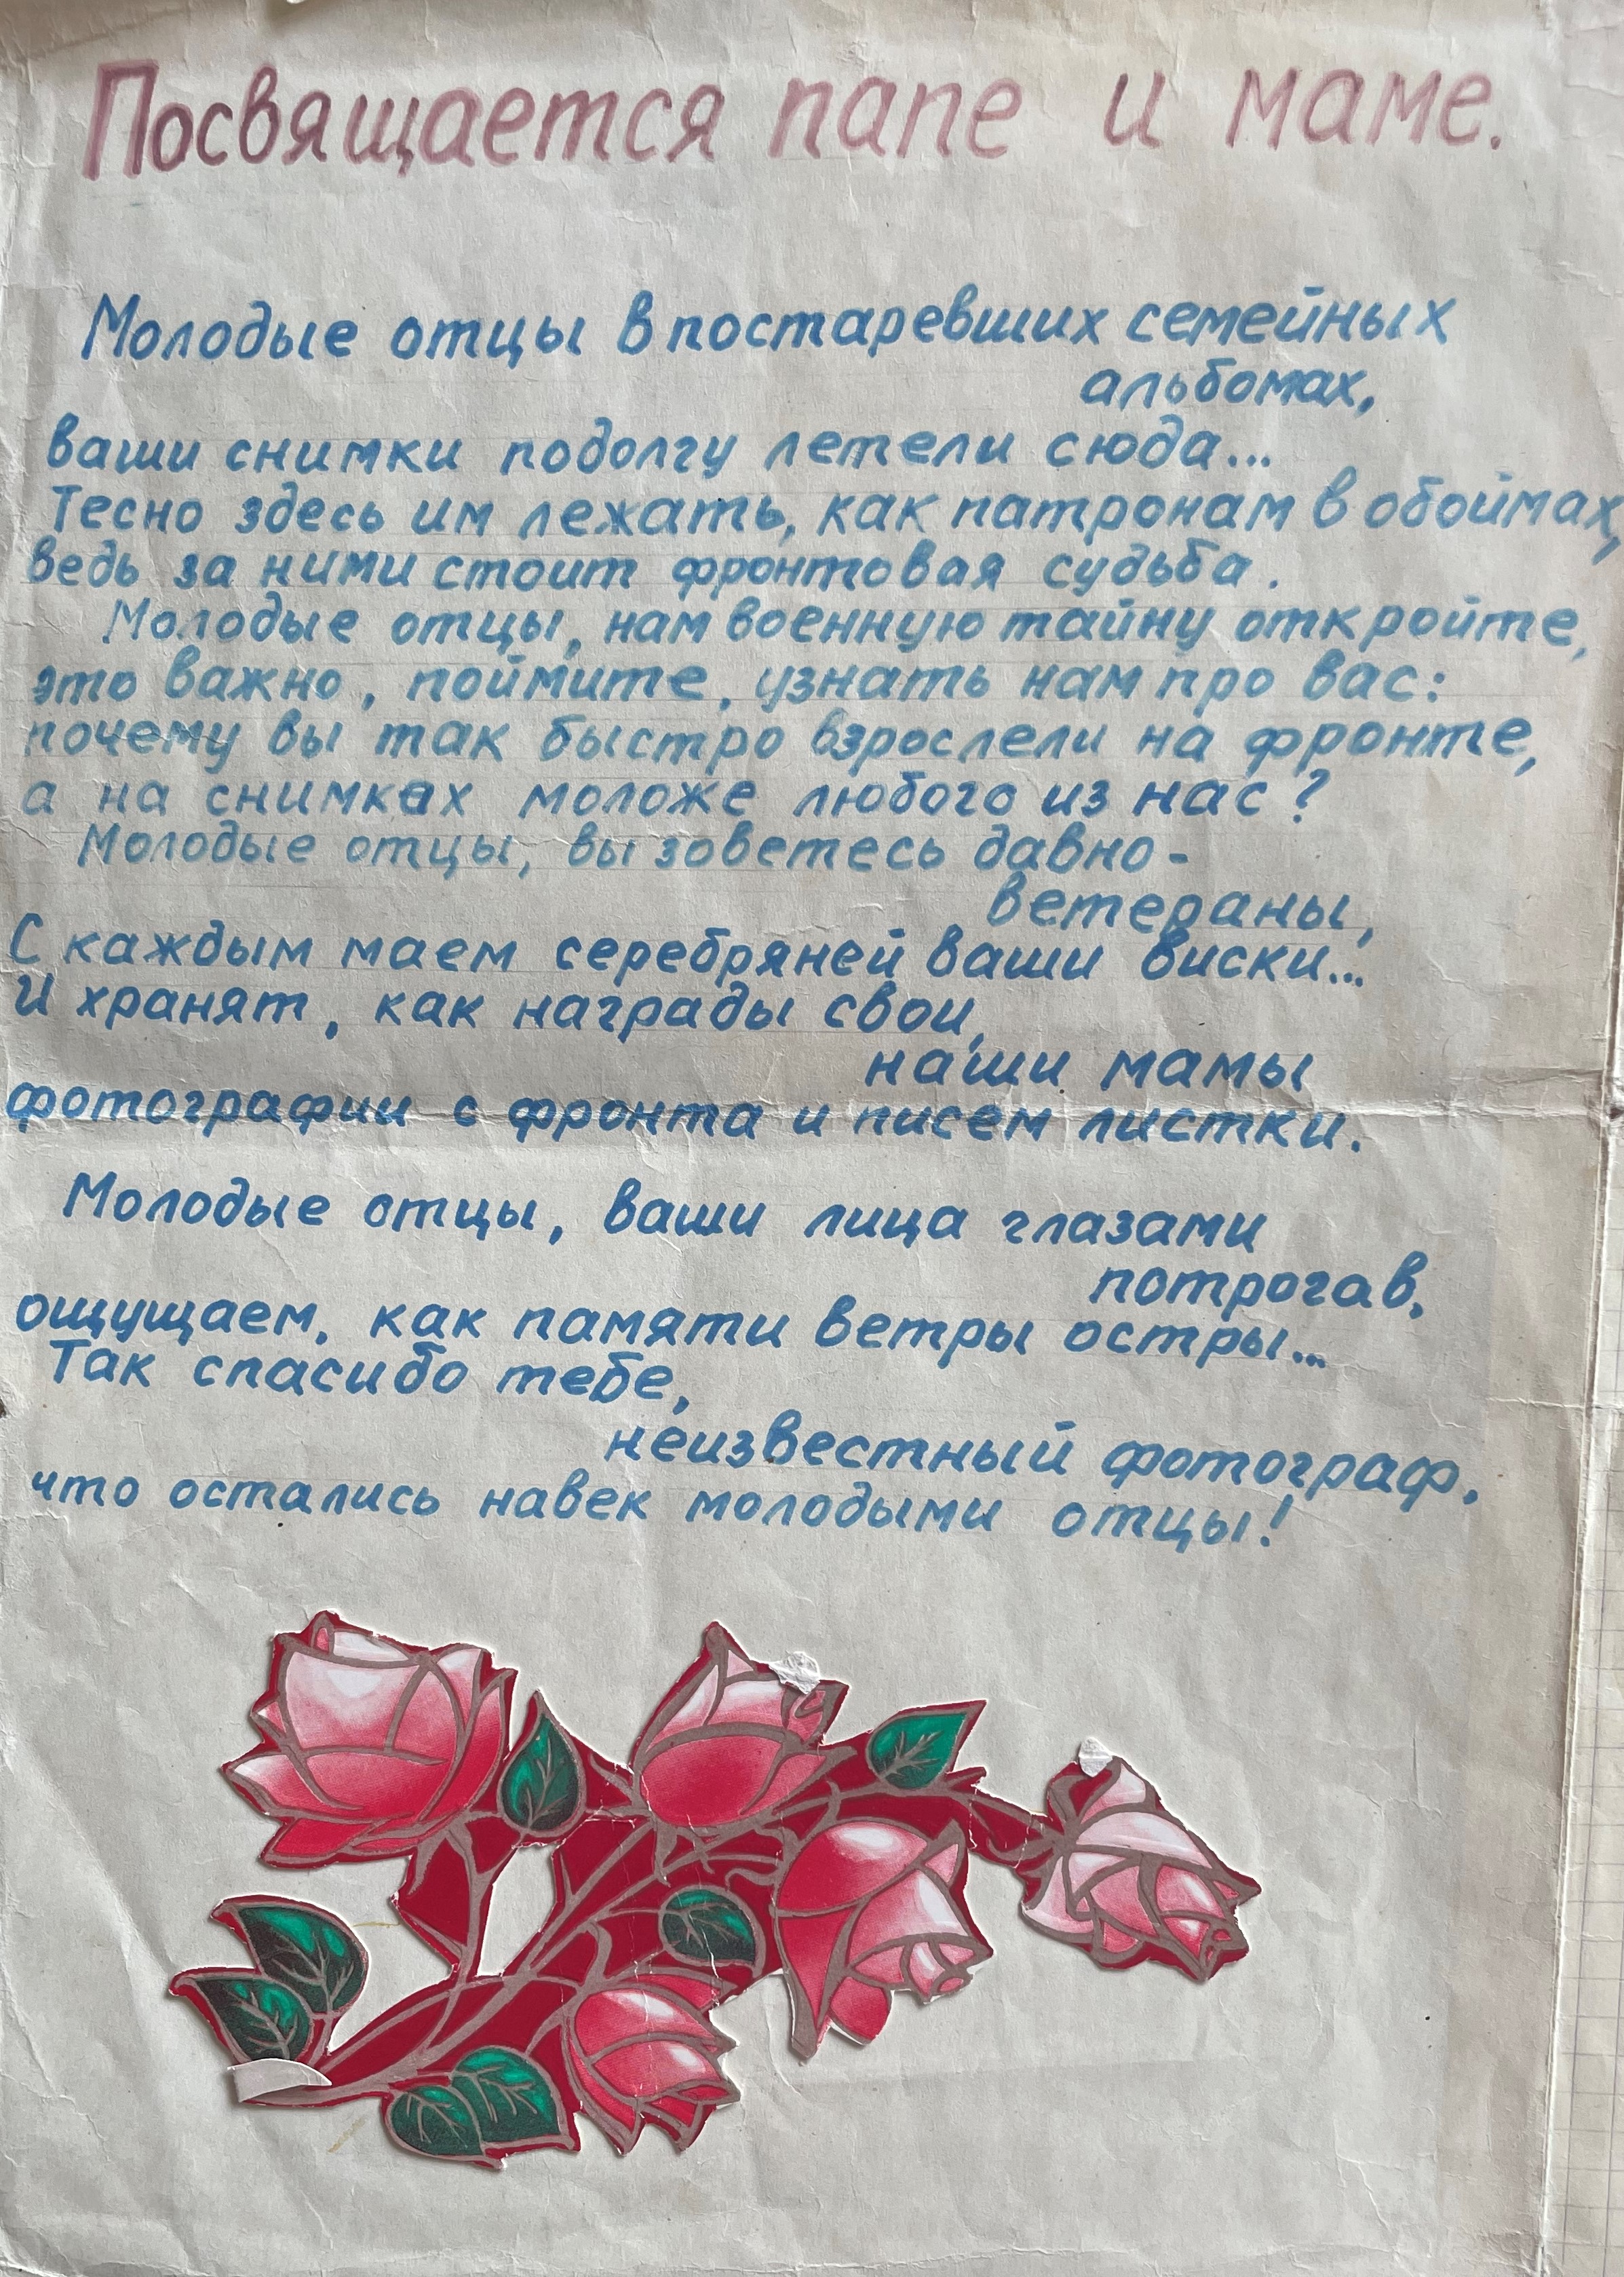 Посвящается папе и маме.
Молодые отцы в постаревших семейных
альбомах,
ваши снимки подолгу летели сюда...
Тесно здесь им лежать, как патронам в обоймах,
ведь за ними стоит фронтовая судьба.
Молодые отцы, нам военную тайну откройте,
это важно, поймите, узнать нам про вас:
почему вы так быстро взрослели на фронте,
а на снимках моложе любого из нас?
Молодые отцы, вы зоветесь давно -
ветераны,
С каждым маем серебряней ваши виски...
И хранят, как награды свои,
наши мамы
фотографии с фронта и писем листки.
Молодые отцы, ваши лица глазами
потрогав,
ощущаем, как памяти ветры остры...
Так спасибо тебе,
неизвестный фотограф,
что остались навек молодыми отцы!